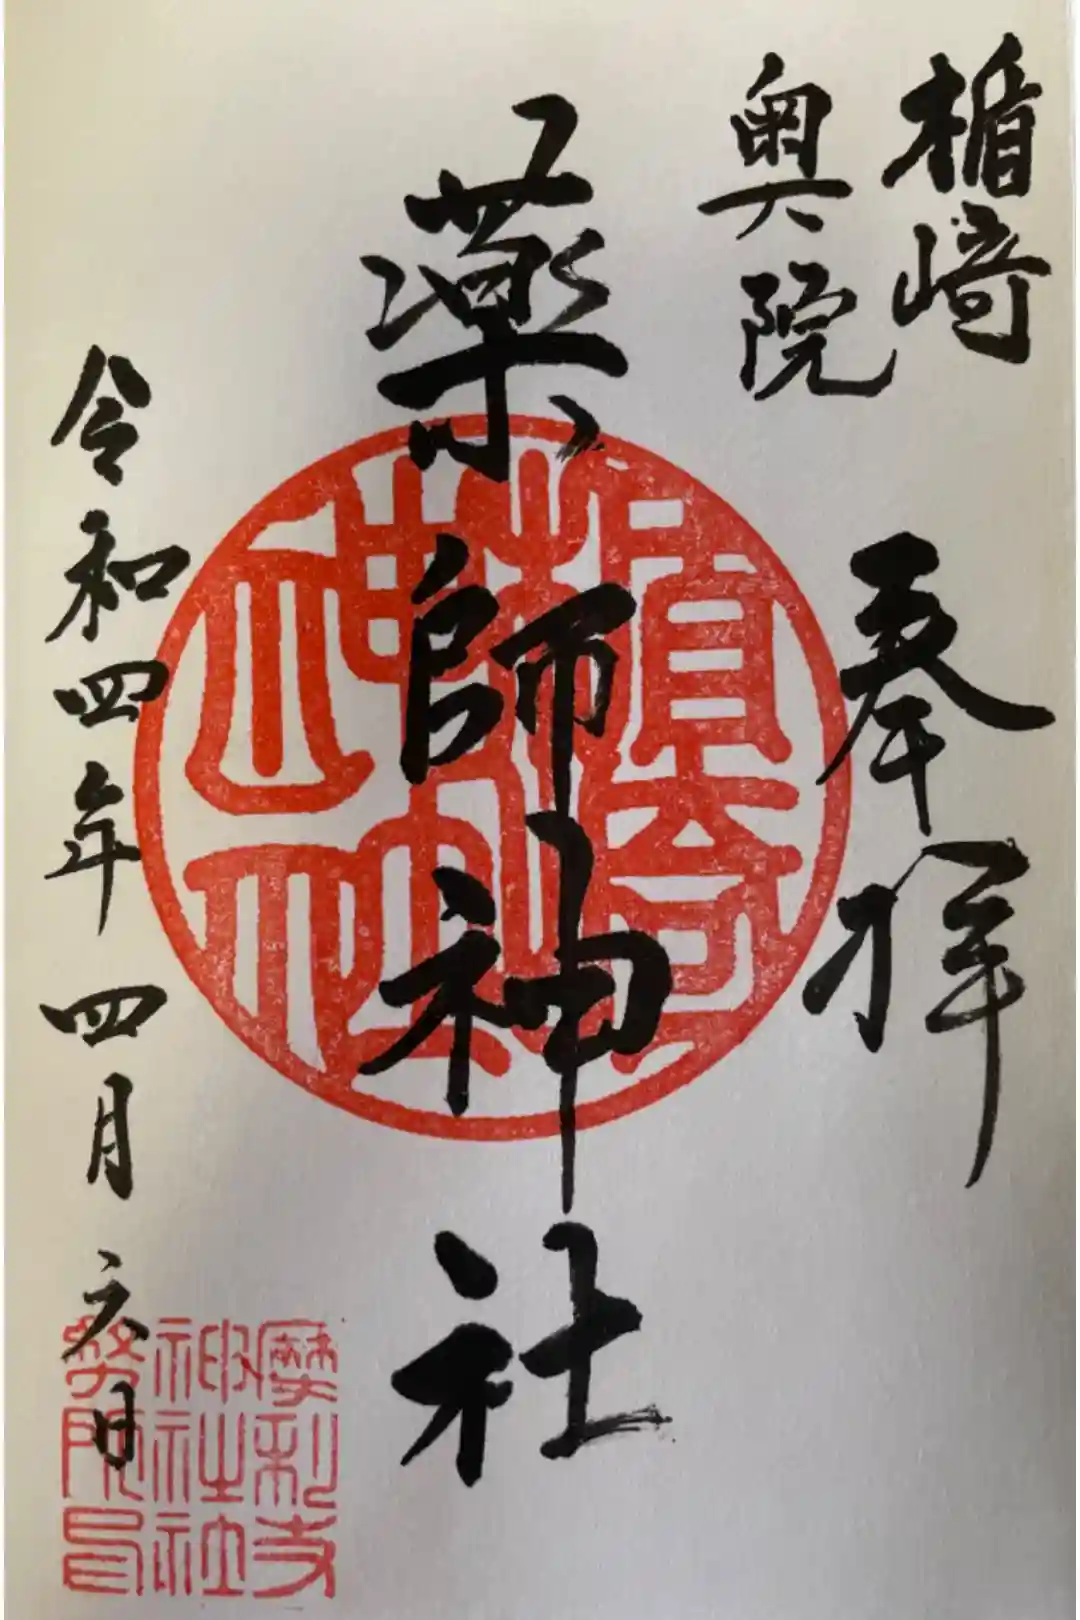 楯崎
奥院
奉拝
薬師神社
令和四年四月六日
楯崎
神社
之印
摩利支
神社社
務所印